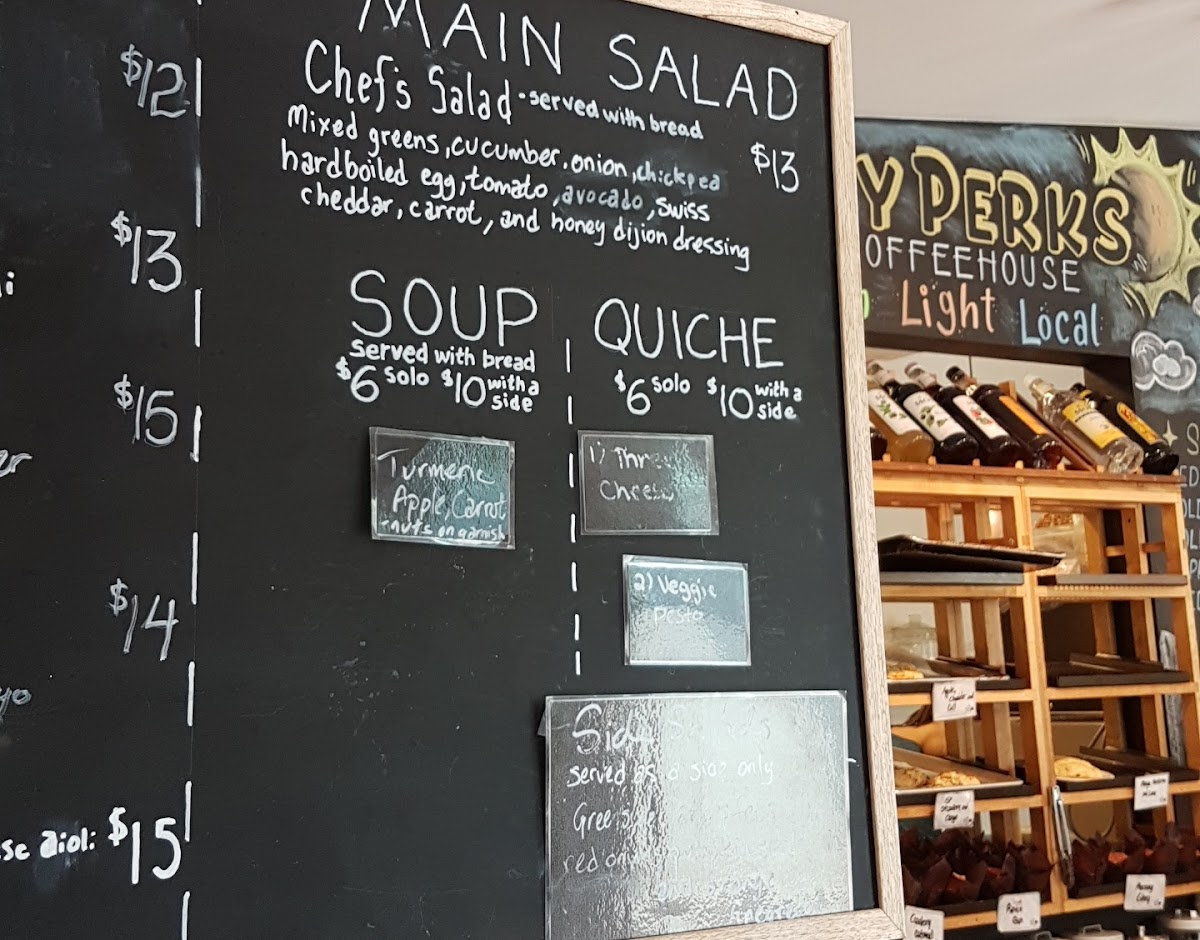 $12
$13
$15
$14
se aioli: $15
MAIN SALAD
Chef's Salad - served with bread
$13
Mixed greens, cucumber, onion, chickpea
hardboiled egg, tomato, avocado, swiss
cheddar, carrot, and honey dijion dressing
SOUP
served with bread
$6 solo $10 with a side
Turmeric
Apple, Carrot
-nuts on garnish
QUICHE
$6 solo $10 with a side
1) Three
Cheese
2) Veggie
pesto
Side Salads
served as a side only
Greek
red onion
Y PERKS
OFFEEHOUSE
Light Local